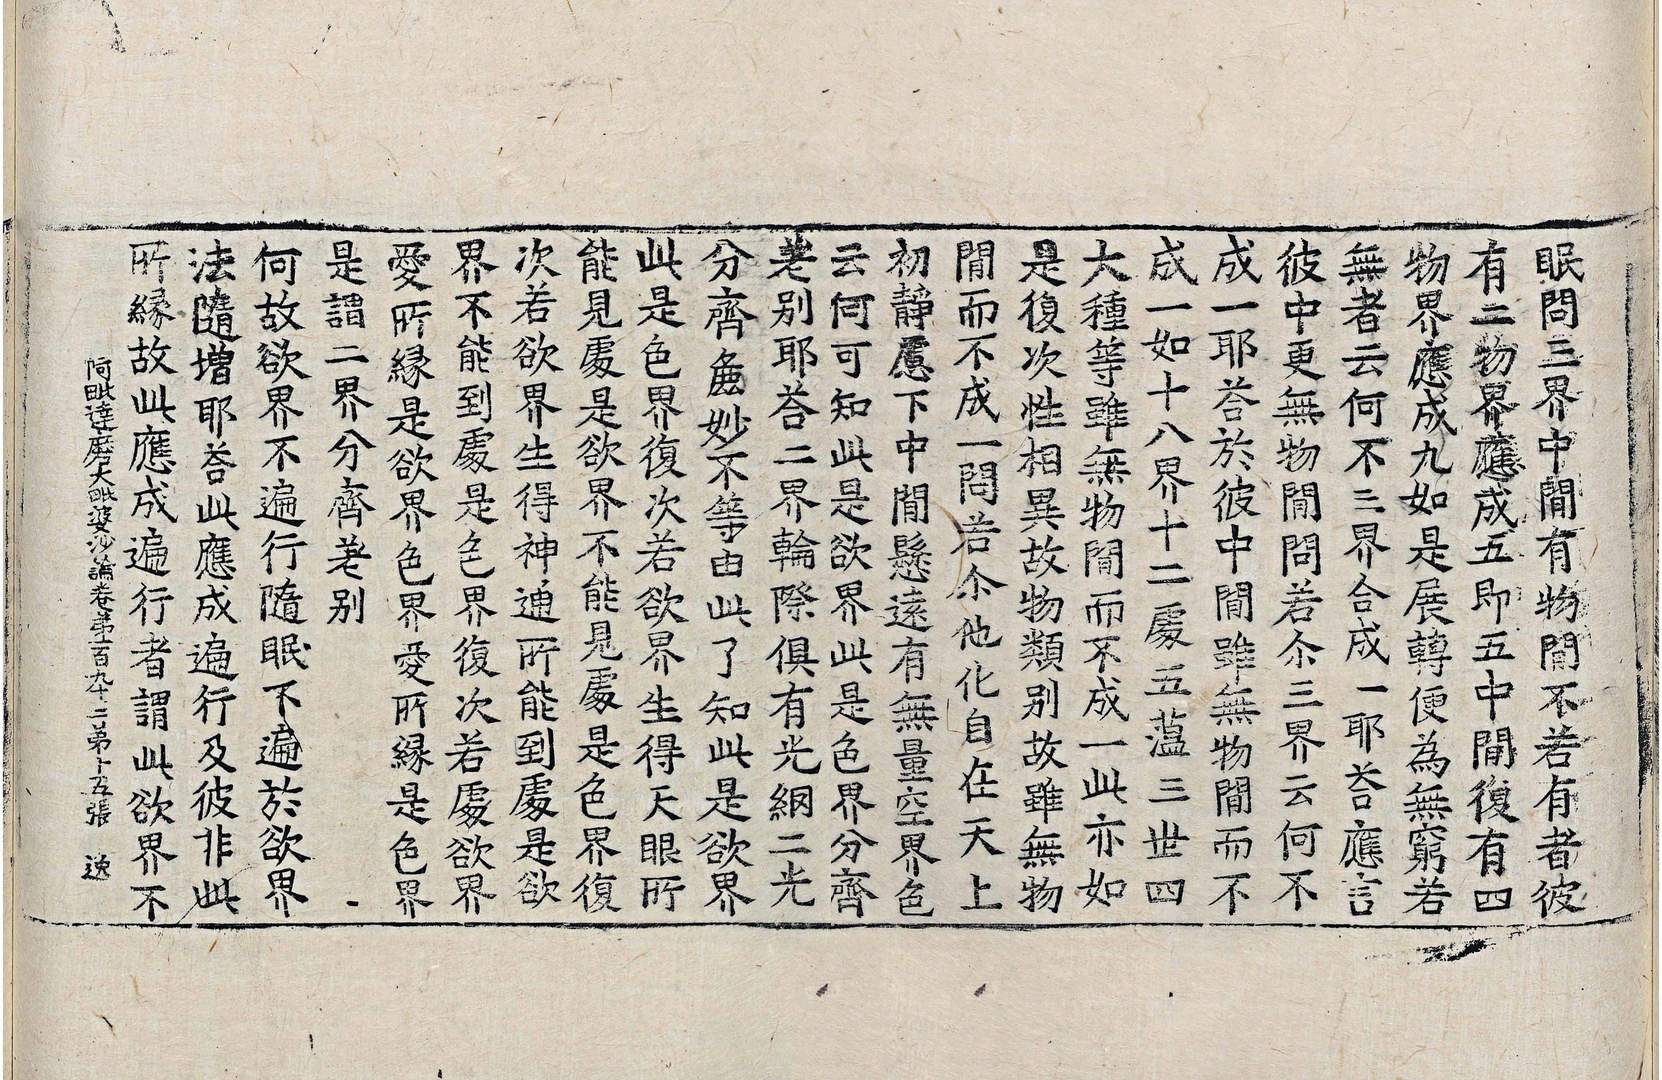 眠問三界中間有物間不若有者彼
有二物界應成五即五中間復有四
物界應成九如是展轉便為無窮若
無者云何不三界合成一耶荅應言
彼中更無物間問若尒三界云何不
成一耶荅於彼中間雖無物間而不
成一如十八界十二處五蘊三世四
大種等雖無物間而不成一此亦如
是復次性相異故物類別故雖無物
間而不成一問若尒他化自在天上
初靜慮下中間懸遠有無量空界色
云何可知此是欲界此是色界分齊
差別耶荅二界輪際俱有光網二光
分齊麁妙不等由此了知此是欲界
此是色界復次若欲界生得天眼所
能見處是欲界不能見處是色界復
次若欲界生得神通所能到處是欲
界不能到處是色界復次若處欲界
愛所緣是欲界色界愛所緣是色界
是謂二界分齊差別
何故欲界不遍行隨眠不遍於欲界
法隨增耶荅此應成遍行及彼非此
所緣故此應成遍行者謂此欲界不
阿毗達磨大毗婆沙論卷第一百九十二第十五張　逸